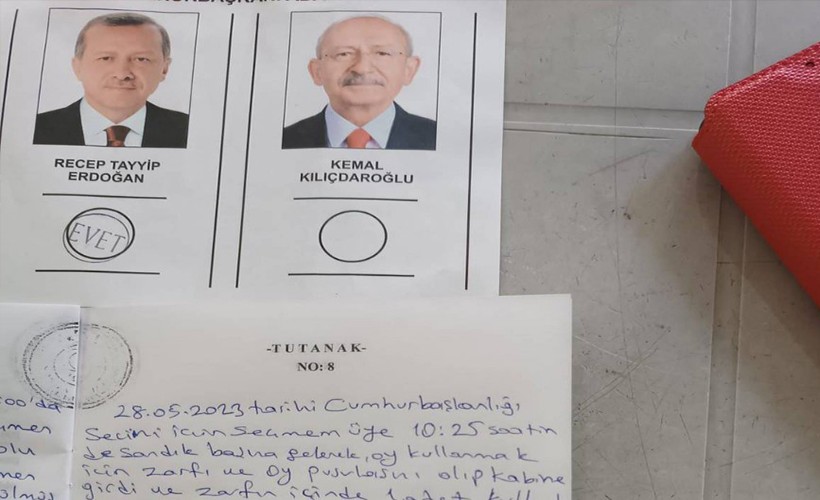 RECEP TAYYİP
ERDOĞAN
KEMAL
KILIÇDAROĞLU
EVET
-TUTANAK-
NO: 8
28.05.2023 tarihi Cumhurbaşkanlığı
Seçimi için Seçmem üye 10:25 saatin
de sandık başına gelerek, oy kullanmak
için zarfı ve oy pusulasını alıp kabine
girdi ve zarfın içinde 1 adet